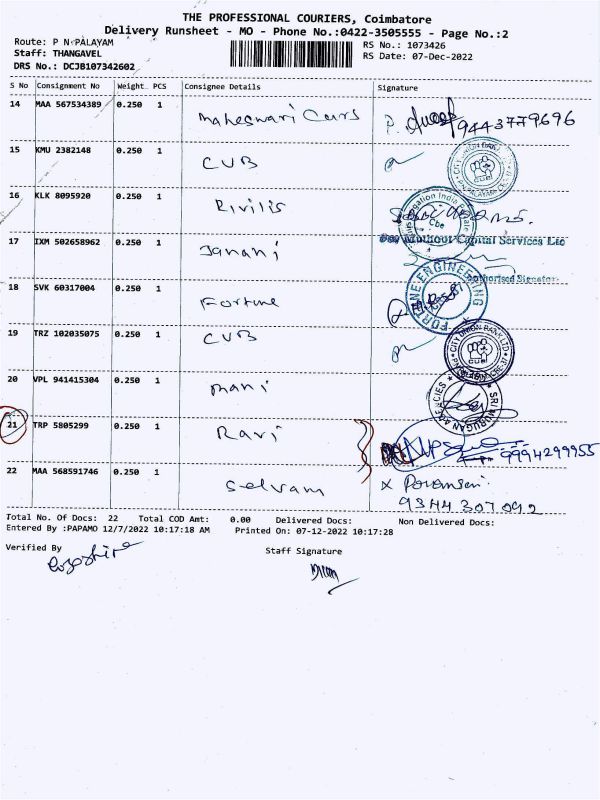 THE PROFESSIONAL COURIERS, Coimbatore
Delivery Runsheet - MO - Phone No.:0422-3505555 - Page No.:2
Route: P N PALAYAM RS No.: 1073426
Staff: THANGAVEL RS Date: 07-Dec-2022
DRS No.: DCJB107342602
S No Consignment No Weight PCS Consignee Details Signature
14 MAA 567534389 0.250 1 Maheswari Curs 9443779696
15 KMU 2382148 0.250 1 CUB CITY UNION BANK CUB
16 KLK 8095920 0.250 1 Rivilis
17 IXM 502658962 0.250 1 Janani For Muthoot Capital Services Ltd
Authorised Signatory
18 SVK 60317004 0.250 1 Fortune ENGINEERING
19 TRZ 102035075 0.250 1 CUB CITY UNION BANK LTD CUB
20 VPL 941415304 0.250 1 Mani SRI MURUGAN AGENCIES
21 TRP 5805299 0.250 1 Ravi 9994299955
22 MAA 568591746 0.250 1 Selvam
9344 307 092
Total No. Of Docs: 22 Total COD Amt: 0.00 Delivered Docs: Non Delivered Docs:
Entered By :PAPAMO 12/7/2022 10:17:18 AM Printed On: 07-12-2022 10:17:28
Verified By Staff Signature